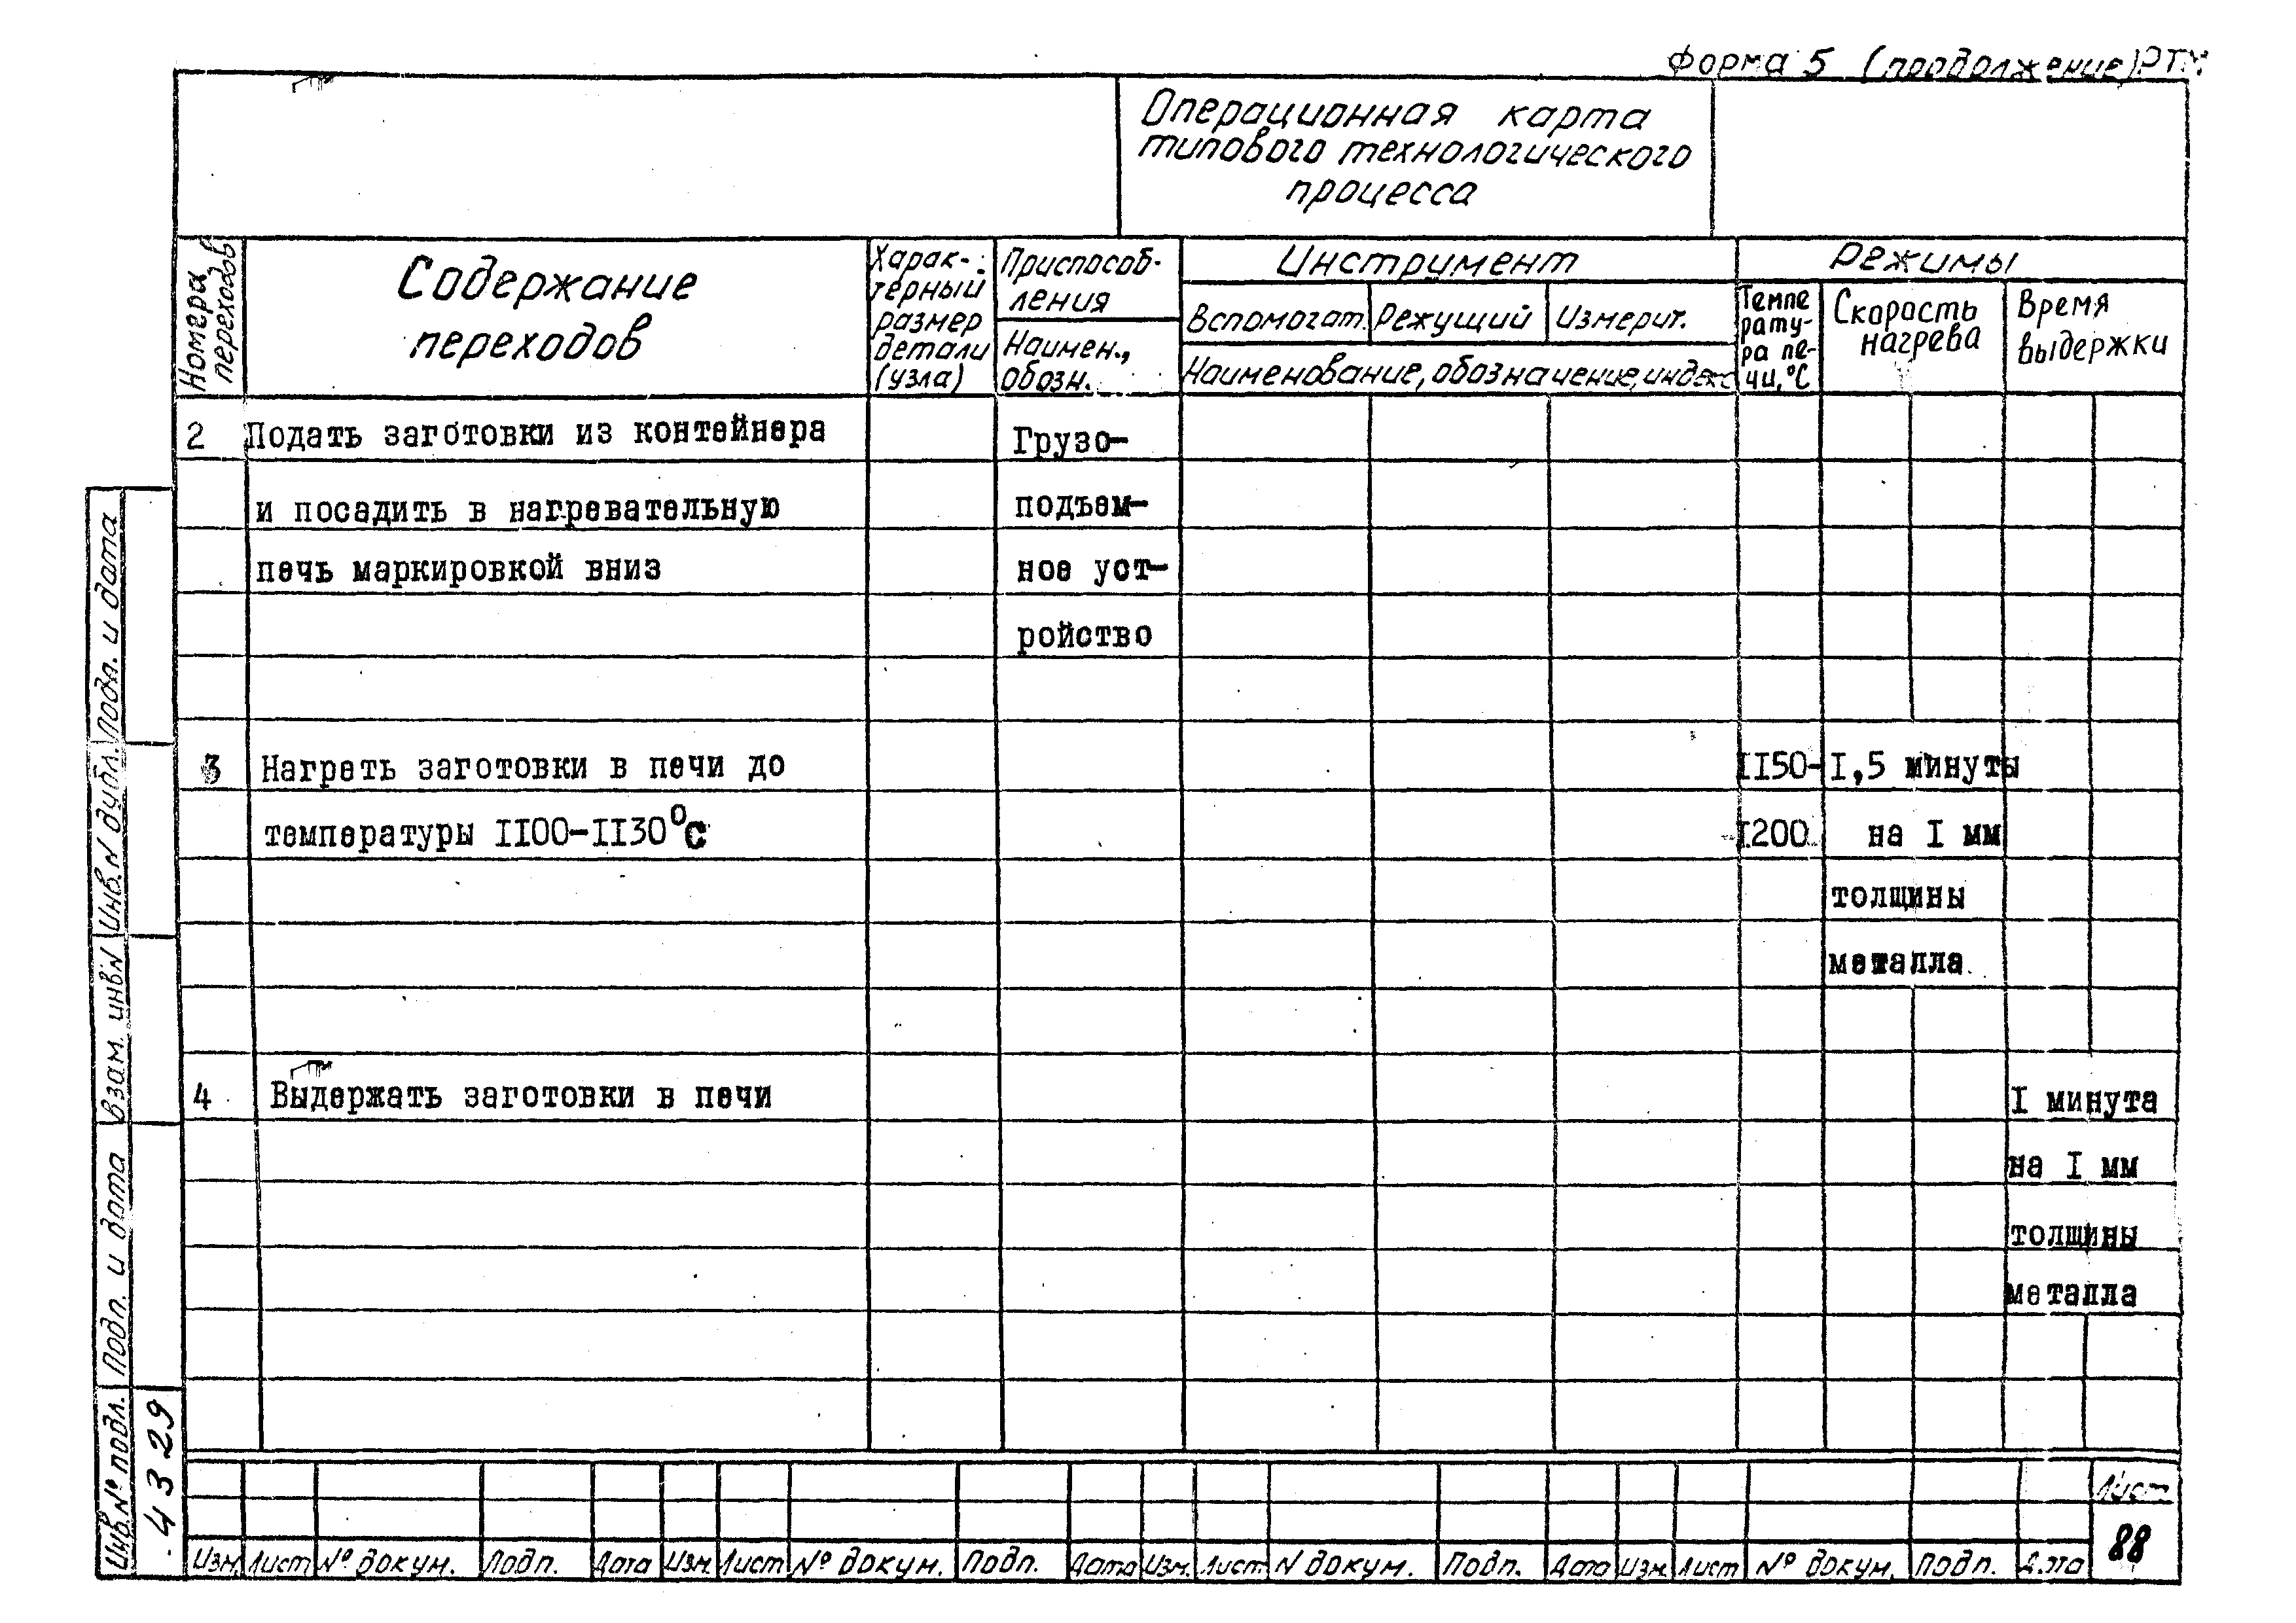 Форма 5 (продолжение) РТМ
Операционная карта
типового технологического
процесса
Номера
переходов
Содержание
переходов
Харак-
терный
размер
детали
(узла)
Приспособ-
ления
Наимен.,
обозн.
Инструмент
Вспомогат.
Режущий
Измерит.
Наименование, обозначение, индекс
Режимы
Темпе
рату-
ра пе-
чи,°С
Скорость
нагрева
Время
выдержки
2 Подать заготовки из контейнера Грузо-
и посадить в нагревательную подъем-
печь маркировкой вниз ное уст-
ройство
3 Нагреть заготовки в печи до II50- I,5 минуты
температуры II00-II30°С I200 на I мм
толщины
металла
4 Выдержать заготовки в печи I минута
на I мм
толщины
металла
Подп. и дата
Инв.№ дубл.
Взам. инв№
Подп. и дата
Инв.№ подл.
4329
Лист
88
Изм. Лист № докум. Подп. Дата Изм. Лист № докум. Подп. Дата Изм. Лист N докум. Подп. Дата Изм. Лист № докум. Подп. Дата